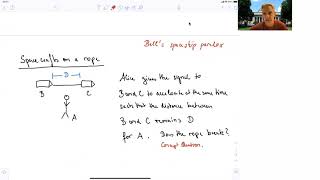 Bell's spaceship paradox
Spacecrafts on a rope
D
B C
A
Alice gives the signal to
B and C to accelerate at the same time
such that the distance between
B and C remains D
for A. Does the rope break?
Concept Question.